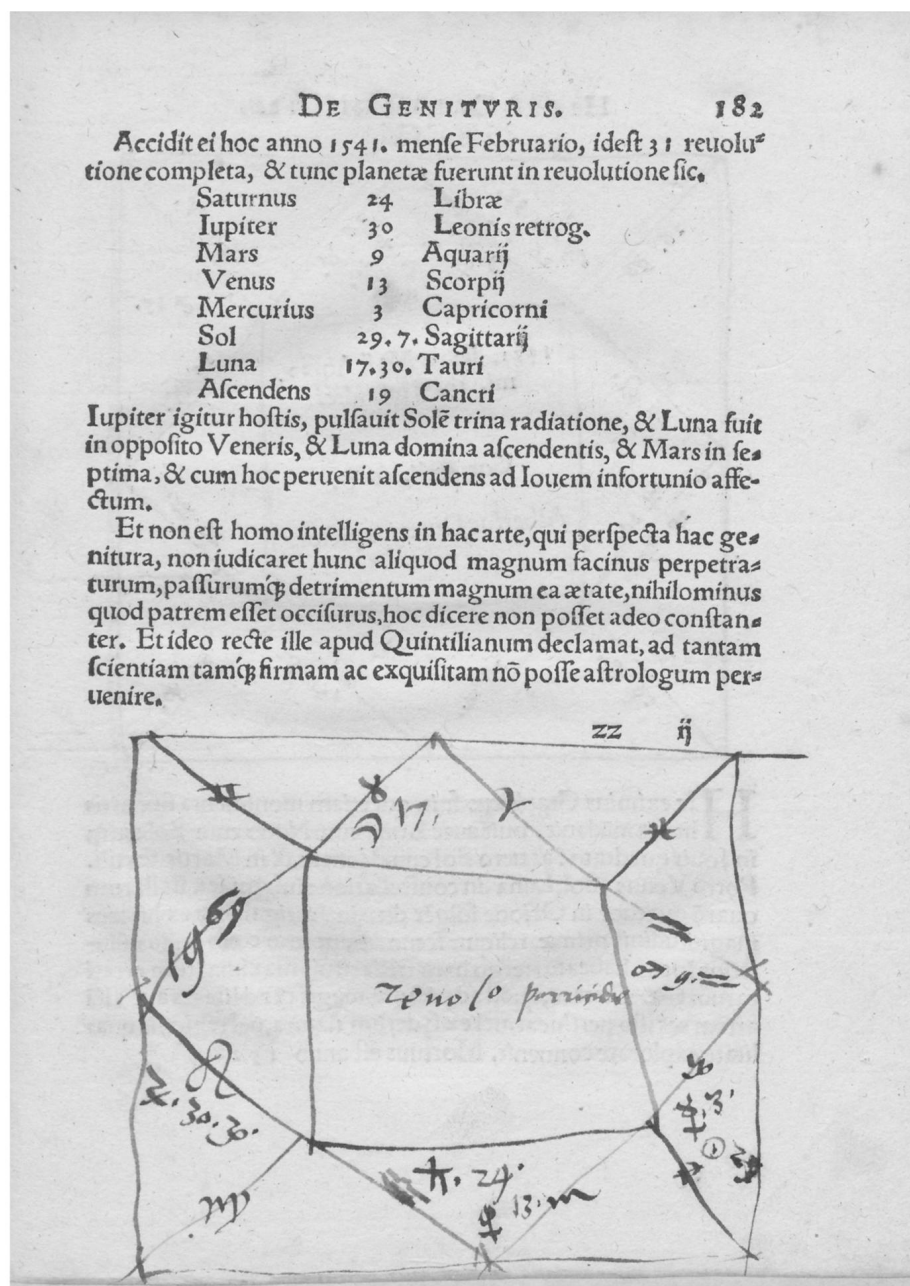 DE GENITVRIS. 182
Accidit ei hoc anno 1541. mense Februario, idest 31 reuolu⸗
tione completa, & tunc planetæ fuerunt in reuolutione sic.
Saturnus 24 Libræ
Iupiter 30 Leonis retrog.
Mars 9 Aquarij
Venus 13 Scorpij
Mercurius 3 Capricorni
Sol 29.7. Sagittarij
Luna 17.30. Tauri
Ascendens 19 Cancri
Iupiter igitur hostis, pulsauit Solē trina radiatione, & Luna fuit
in opposito Veneris, & Luna domina ascendentis, & Mars in se⸗
ptima, & cum hoc peruenit ascendens ad Iouem infortunio affe-
ctum.
Et non est homo intelligens in hac arte, qui perspecta hac ge⸗
nitura, non iudicaret hunc aliquod magnum facinus perpetra⸗
turum, passurumq́; detrimentum magnum ea ætate, nihilominus
quod patrem esset occisurus, hoc dicere non posset adeo constan⸗
ter. Et ideo recte ille apud Quintilianum declamat, ad tantam
scientiam tamq́; firmam ac exquisitam nō posse astrologum per⸗
uenire.
zz ij
♊ ♉ ♈ ♓
☽ 17.
19 ♋ ♒
♂ 9. ♒
♌ ♑
♃. 30. 30. ☿. 3.
☉ 29 ♐
♄. 24.
♀ 13. ♏